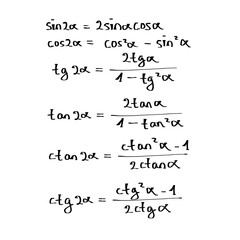 sin2α = 2sinαcosα
cos2α = cos²α - sin²α
tg2α = 2tgα / 1 - tg²α
tan2α = 2tanα / 1 - tan²α
ctan2α = ctan²α - 1 / 2ctanα
ctg2α = ctg²α - 1 / 2ctgα